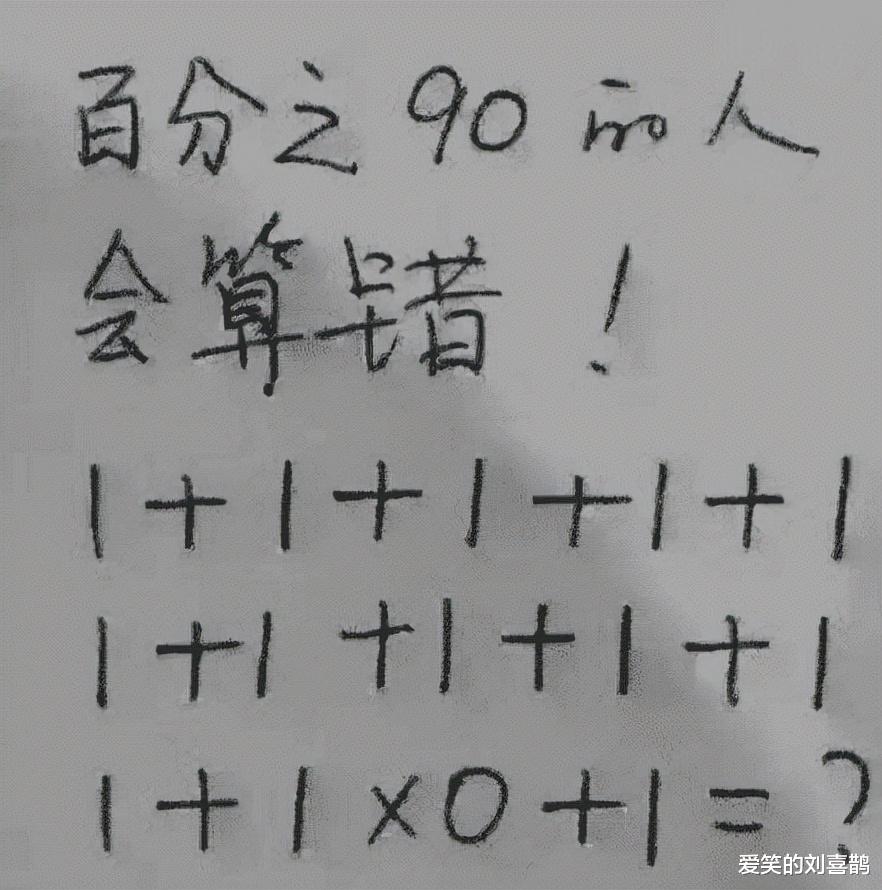 百分之90的人
会算错！
1+1+1+1+1
1+1+1+1+1
1+1×0+1=?
爱笑的刘喜鹊